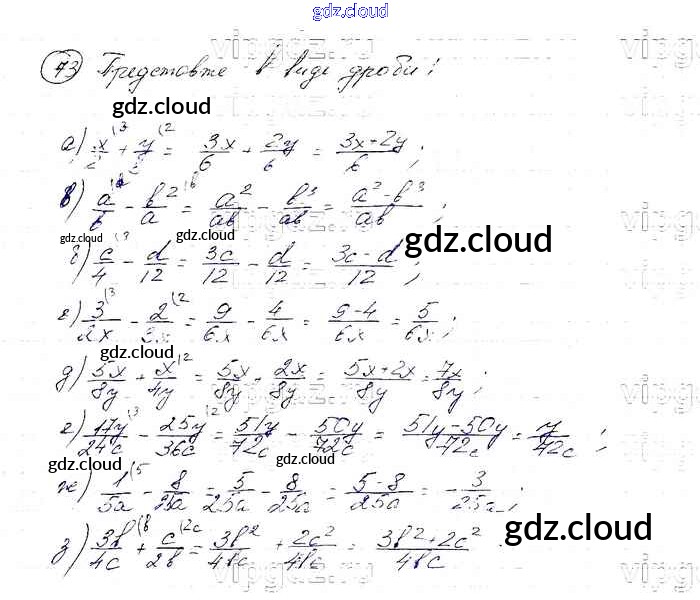 gdz.cloud
73 Представте в виде дроби:
gdz.cloud
а) x/2 + y/2 = 3x/6 + 2y/6 = (3x+2y)/6;
в) a/b - b²/a = a²/ab - b³/ab = (a²-b³)/ab;
gdz.cloud gdz.cloud gdz.cloud
б) c/4 - d/12 = 3c/12 - d/12 = (3c-d)/12;
г) 3/2x - 2/3x = 9/6x - 4/6x = (9-4)/6x = 5/6x;
gdz.cloud
д) 5x/8y + x/4y = 5x/8y + 2x/8y = (5x+2x)/8y = 7x/8y;
е) 17y/24c - 25y/36c = 51y/72c - 50y/72c = (51y-50y)/72c = y/72c;
gdz.cloud gdz.cloud
ж) 1/5a - 8/25a = 5/25a - 8/25a = (5-8)/25a = -3/25a;
gdz.cloud
з) 3b/4c + c/2b = 3b²/4bc + 2c²/4bc = (3b²+2c²)/4bc